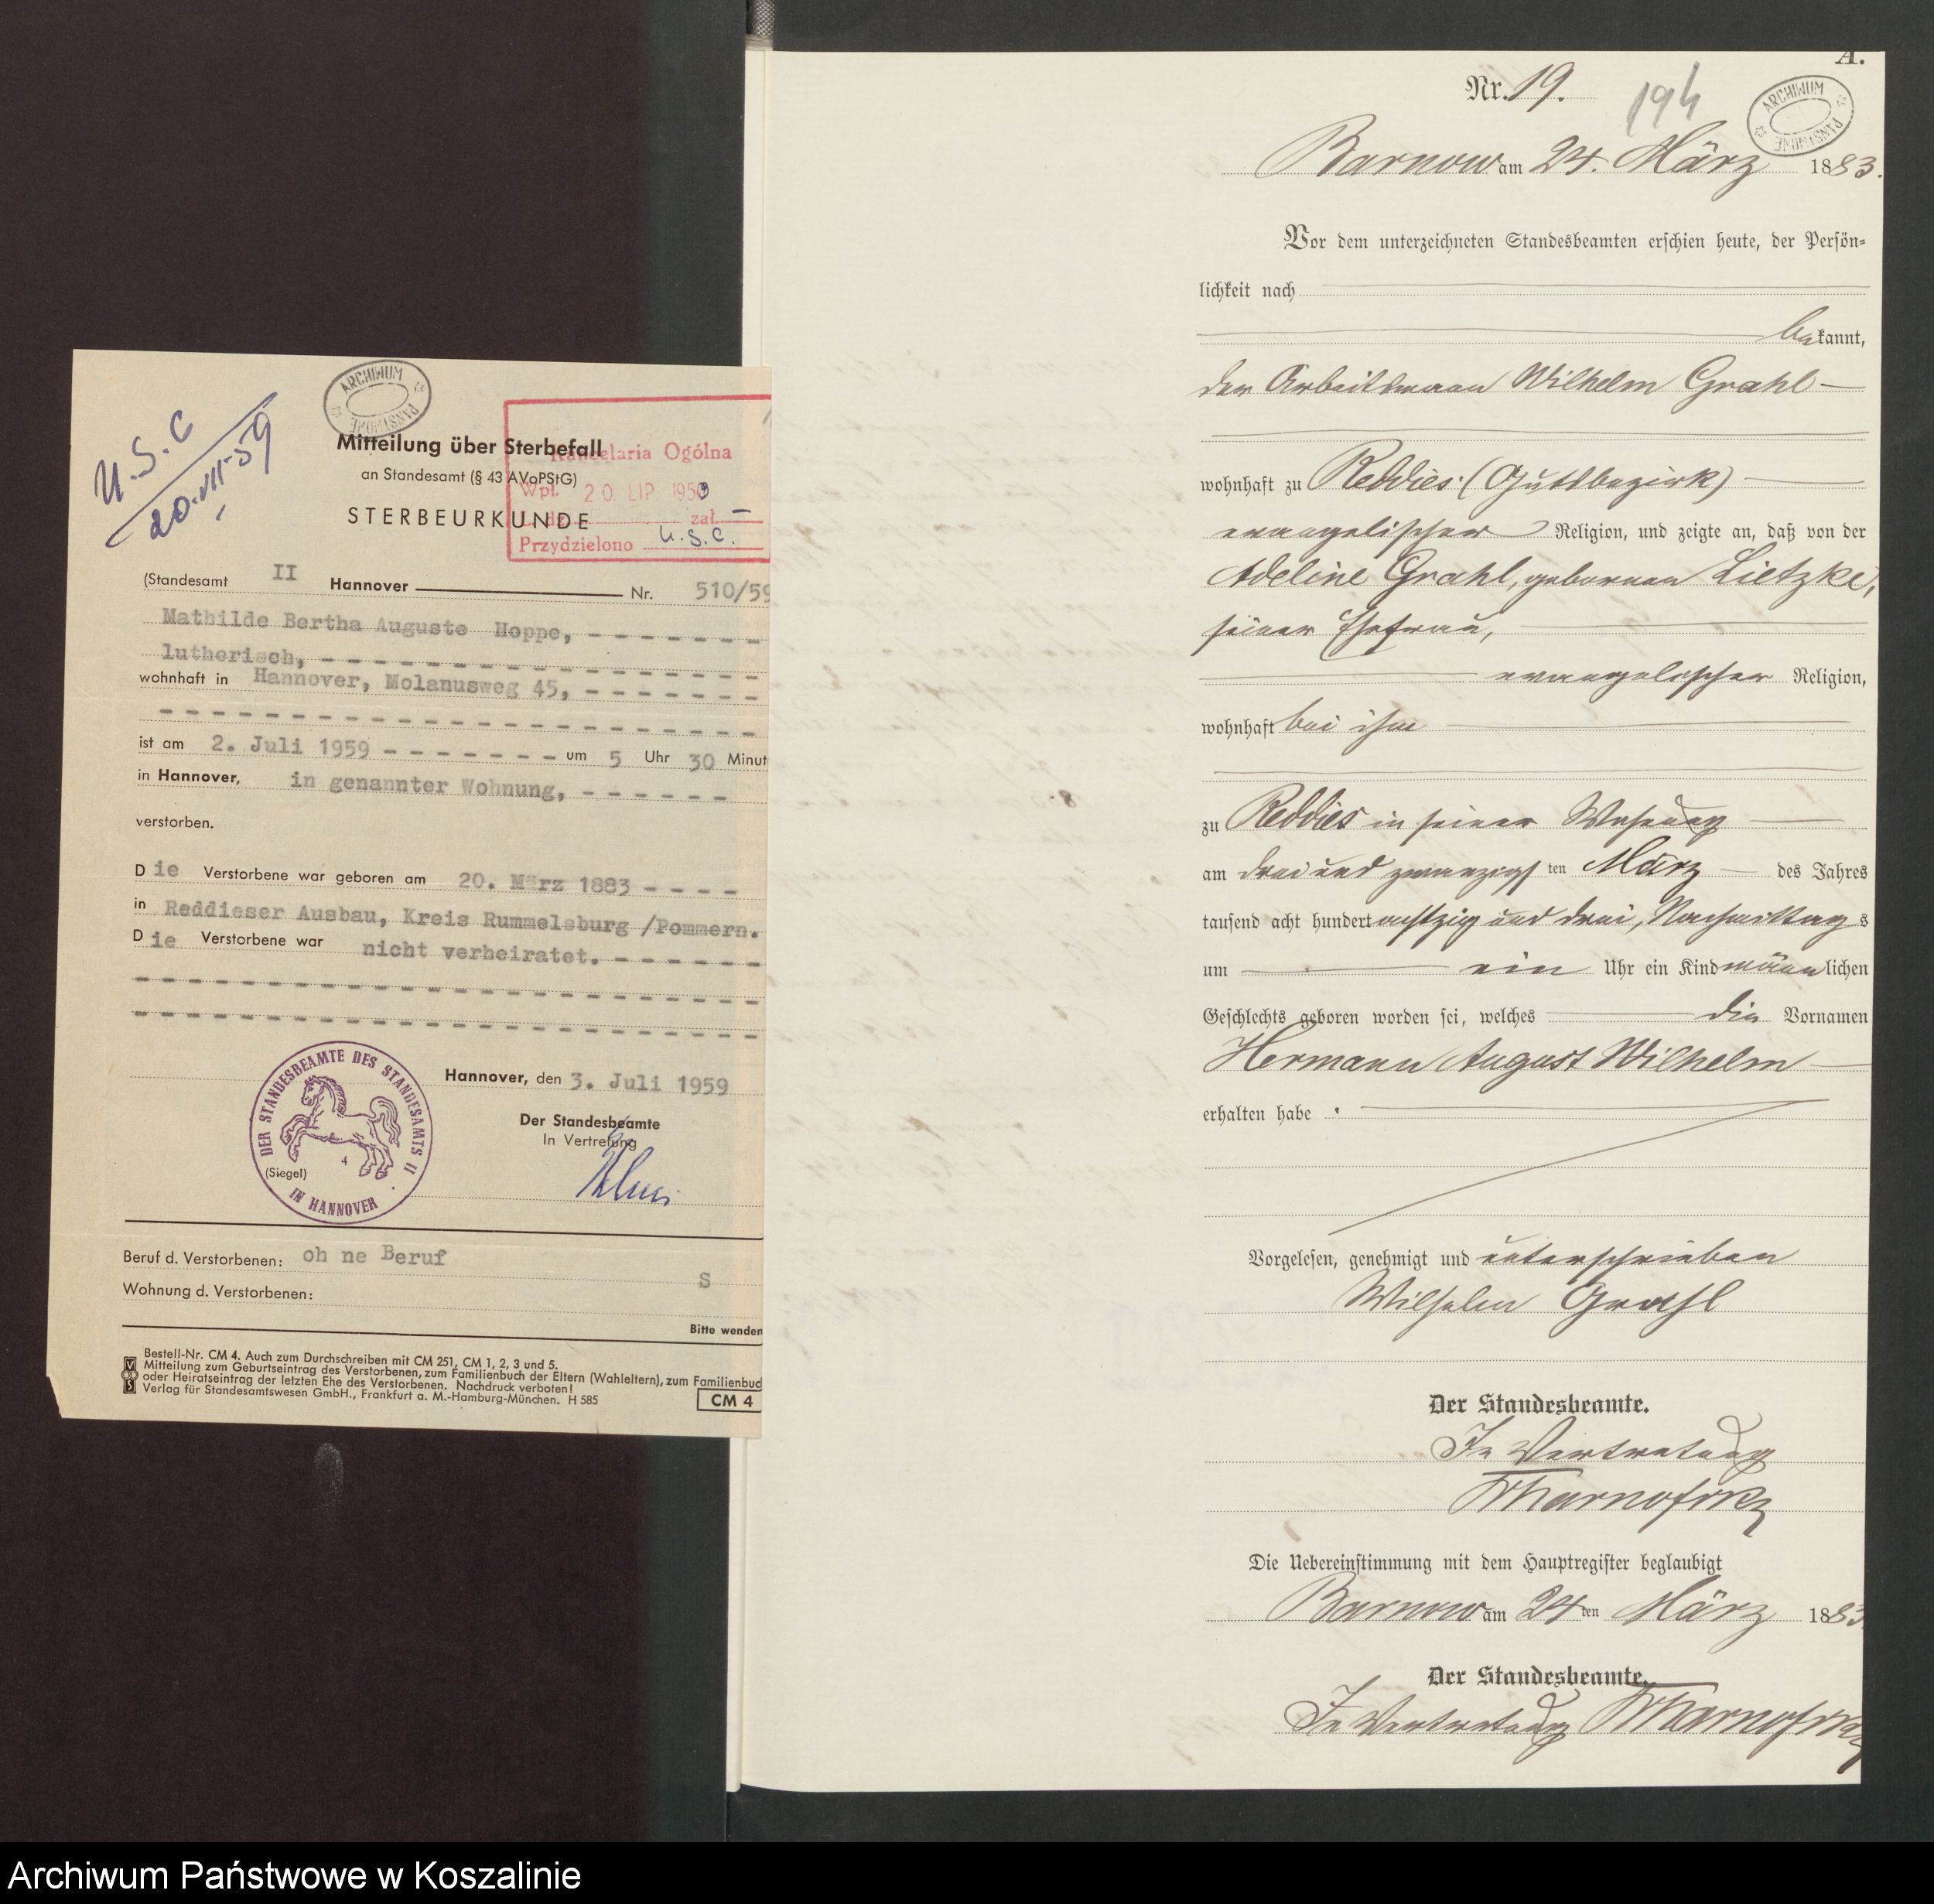 U.S.C
20.VII-59
ARCHIWUM PAŃSTWOWE
Mitteilung über Sterbefall
an Standesamt (§ 43 AVoPStG)
STERBEURKUNDE
Kancelaria Ogólna
Wpł. 20 LIP 1959
zał. –
Przydzielono U.S.C.
(Standesamt II Hannover Nr. 510/59
Mathilde Bertha Auguste Hoppe,
lutherisch,
wohnhaft in Hannover, Molanusweg 45,
ist am 2. Juli 1959 um 5 Uhr 30 Minut
in Hannover, in genannter Wohnung,
verstorben.
Die Verstorbene war geboren am 20. März 1883
in Reddieser Ausbau, Kreis Rummelsburg /Pommern.
Die Verstorbene war nicht verheiratet.
Hannover, den 3. Juli 1959
Der Standesbeamte
In Vertretung
DER STANDESBEAMTE DES STANDESAMTS II
IN HANNOVER
(Siegel)
4
Beruf d. Verstorbenen: oh ne Beruf
S
Wohnung d. Verstorbenen:
Bitte wenden
Bestell-Nr. CM 4. Auch zum Durchschreiben mit CM 251, CM 1, 2, 3 und 5.
Mitteilung zum Geburtseintrag des Verstorbenen, zum Familienbuch der Eltern (Wahleltern), zum Familienbuch
oder Heiratseintrag der letzten Ehe des Verstorbenen. Nachdruck verboten!
Verlag für Standesamtswesen GmbH., Frankfurt a. M.-Hamburg-München. H 585
CM 4
A.
Nr. 19.
194
ARCHIWUM PAŃSTWOWE
Barnow am 24. März 1883.
Vor dem unterzeichneten Standesbeamten erschien heute, der Persön-
lichkeit nach
bekannt,
der Arbeitsmann Wilhelm Grahl
wohnhaft zu Reddies (Gutsbezirk)
evangelischer Religion, und zeigte an, daß von der
Adeline Grahl, geborenen Lietzke,
seiner Ehefrau,
evangelischer Religion,
wohnhaft bei ihm
zu Reddies in seiner Wohnung
am drei und zwanzigsten März des Jahres
tausend acht hundert achtzig und drei, Nachmittags
um ein Uhr ein Kind männlichen
Geschlechts geboren worden sei, welches die Vornamen
Hermann August Wilhelm
erhalten habe.
Vorgelesen, genehmigt und unterschrieben
Wilhelm Grahl
Der Standesbeamte.
In Vertretung
Die Uebereinstimmung mit dem Hauptregister beglaubigt
Barnow am 24ten März 1883
Der Standesbeamte.
In Vertretung
Archiwum Państwowe w Koszalinie